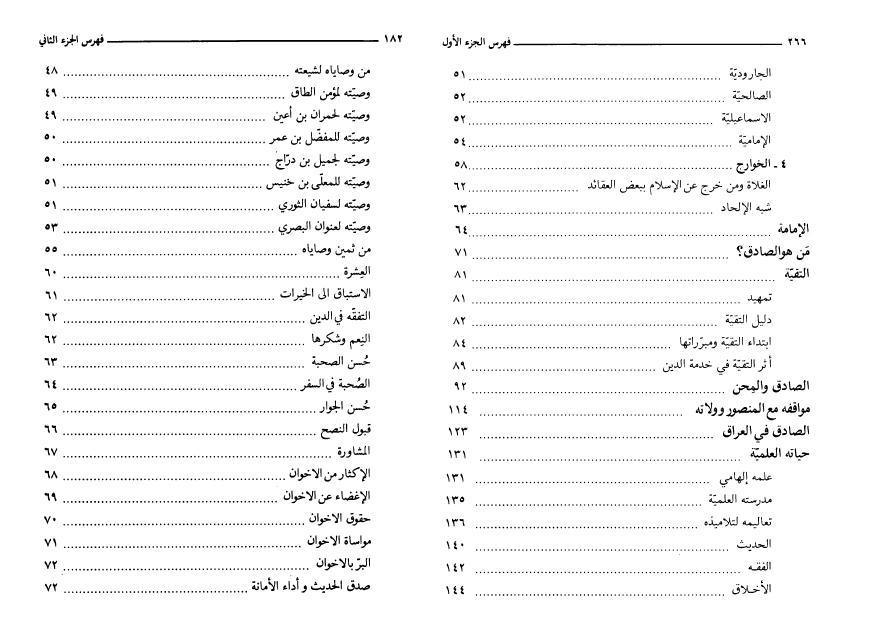 ٢٦٦ فهرس الجزء الأول
الجاروديّة ٥١
الصالحيّة ٥٢
الاسماعيليّة ٥٢
الإماميّة ٥٤
٤ ـ الخوارج ٥٨
الغلاة ومن خرج عن الإسلام ببعض العقائد ٦٢
شبه الإلحاد ٦٣
الإمامة ٦٤
مَن هو الصادق؟ ٧١
التقيّة ٨١
تمهيد ٨١
دليل التقيّة ٨٢
ابتداء التقيّة ومبرّراتها ٨٤
أثر التقيّة في خدمة الدين ٨٩
الصادق والمِحن ٩٢
مواقفه مع المنصور وولاته ١١٤
الصادق في العراق ١٢٣
حياته العلميّة ١٣١
علمه إلهامي ١٣١
مدرسته العلميّة ١٣٥
تعاليمه لتلاميذه ١٣٦
الحديث ١٤٠
الفقه ١٤٢
الأخلاق ١٤٤
١٨٢ فهرس الجزء الثاني
من وصاياه لشيعته ٤٨
وصيّته لمؤمن الطاق ٤٩
وصيّته لحمران بن أعين ٤٩
وصيّته للمفضّل بن عمر ٥٠
وصيّته لجميل بن درّاج ٥٠
وصيّته للمعلّى بن خنيس ٥١
وصيّته لسفيان الثوري ٥١
وصيّته لعنوان البصري ٥٣
من ثمين وصاياه ٥٥
العِشرة ٦٠
الاستباق الى الخيرات ٦١
التفقّه في الدين ٦٢
النِعم وشكرها ٦٢
حُسن الصحبة ٦٣
الصُحبة في السفر ٦٤
حُسن الجوار ٦٥
قبول النصح ٦٦
المشاورة ٦٧
الإكثار من الاخوان ٦٨
الإغضاء عن الاخوان ٦٩
حقوق الاخوان ٧٠
مواساة الاخوان ٧١
البرّ بالاخوان ٧٢
صدق الحديث و أداء الأمانة ٧٢